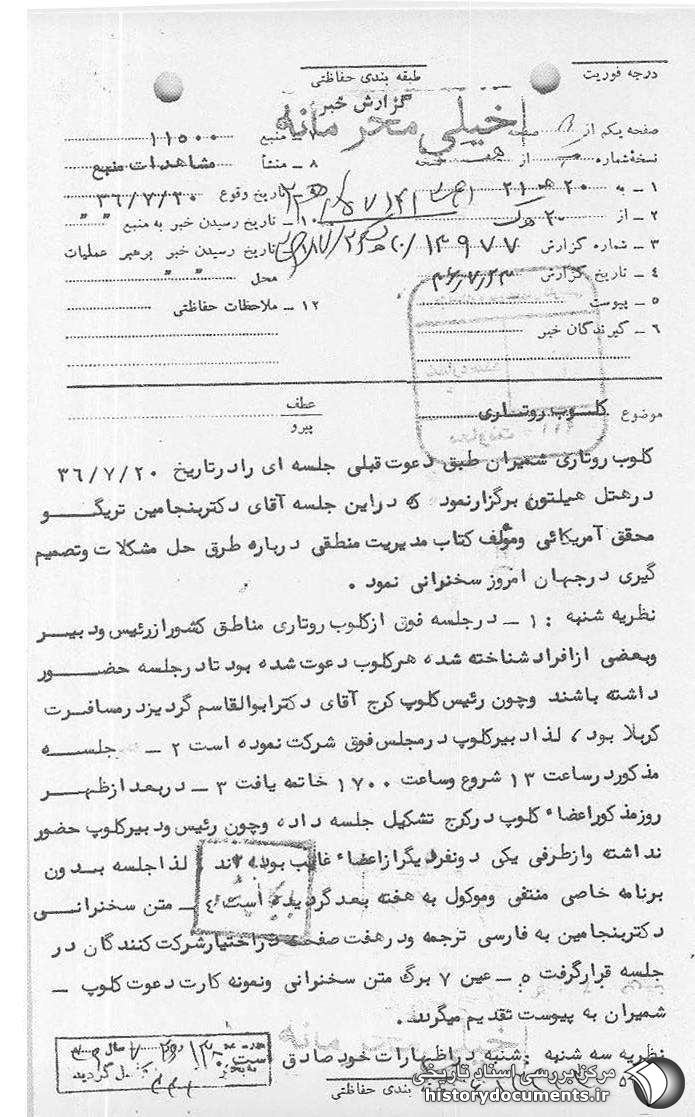 درجه فوریت
طبقه بندی حفاظتی
گزارش خبر
خیلی محرمانه
صفحه یکم از صفحه
نسخهٔ شماره از نسخه
۱ ـ به ۲۰ هـ ۲۱
۲ ـ از ۲۰ هـ
۳ ـ شماره گزارش ۱۴۹۷۷
۴ ـ تاریخ گزارش ۳۶/۷/۲۳
۵ ـ پیوست
۶ ـ گیرندگان خبر
منبع ۱۱۵۰۰
۸ ـ منشأ مشاهدات منبع
تاریخ وقوع ۳۶/۷/۲۰
۱۰ ـ تاریخ رسیدن خبر به منبع " "
تاریخ رسیدن خبر برهبر عملیات
محل " "
۱۲ ـ ملاحظات حفاظتی
موضوع کلوب روتاری
عطف
پیرو
کلوب روتاری شمیران طبق دعوت قبلی جلسه ای را در تاریخ ۳۶/۷/۲۰
در هتل هیلتون برگزار نمود که در این جلسه آقای دکتر بنجامین تریگو
محقق آمریکائی ومؤلف کتاب مدیریت منطقی درباره طرق حل مشکلات وتصمیم
گیری در جهان امروز سخنرانی نمود .
نظریه شنبه : ۱ ـ در جلسه فوق از کلوب روتاری مناطق کشور از رئیس ودبیر
وبعضی از افراد شناخته شده هر کلوب دعوت شده بود تا در جلسه حضور
داشته باشند وچون رئیس کلوپ کرج آقای دکتر ابوالقاسم گردیز در مسافرت
کربلا بود ، لذا دبیر کلوپ در مجلس فوق شرکت نموده است ۲ ـ جلسه
مذکور در ساعت ۱۳ شروع وساعت ۱۷۰۰ خاتمه یافت ۳ ـ در بعد از ظهر
روز مذکور اعضاء کلوپ در کرج تشکیل جلسه داده وچون رئیس ودبیر کلوپ حضور
نداشته واز طرفی یکی دو نفر دیگر از اعضاء غائب بوده اند ، لذا جلسه بدون
برنامه خاصی منتفی وموکول به هفته بعد گردیده است ۴ ـ متن سخنرانی
دکتر بنجامین به فارسی ترجمه ودر هفت صفحه در اختیار شرکت کنندگان در
جلسه قرار گرفت ۵ ـ عین ۷ برگ متن سخنرانی ونمونه کارت دعوت کلوپ ـ
شمیران به پیوست تقدیم میگردد .
نظریه سه شنبه : شنبه در اظهارات خود صادق است .
طبقه بندی حفاظتی
مرکز بررسی اسناد تاریخی
historydocuments.ir